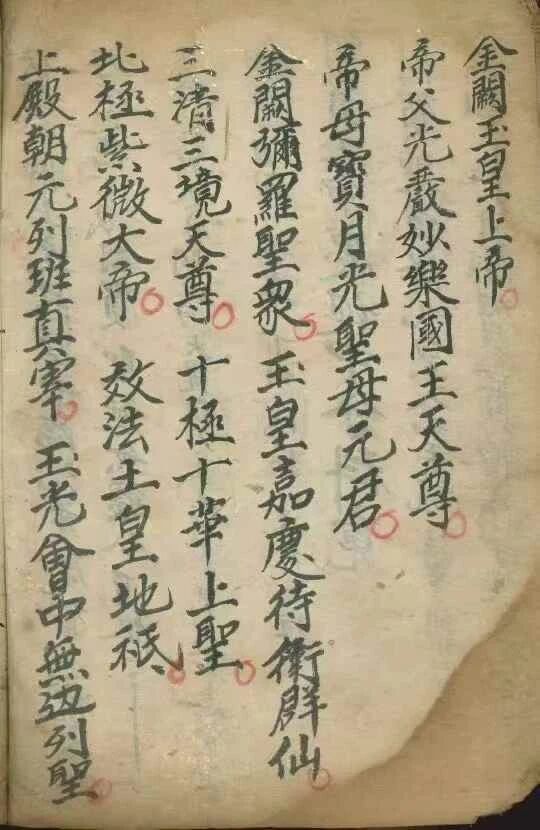 金闕玉皇上帝
帝父光嚴妙樂國王天尊
帝母寶月光聖母元君
金闕彌羅聖衆 玉皇嘉慶待衛群仙
三清三境天尊 十極十華上聖
北極紫微大帝 效法土皇地祇
上殿朝元列班真宰 玉光會中無边列聖